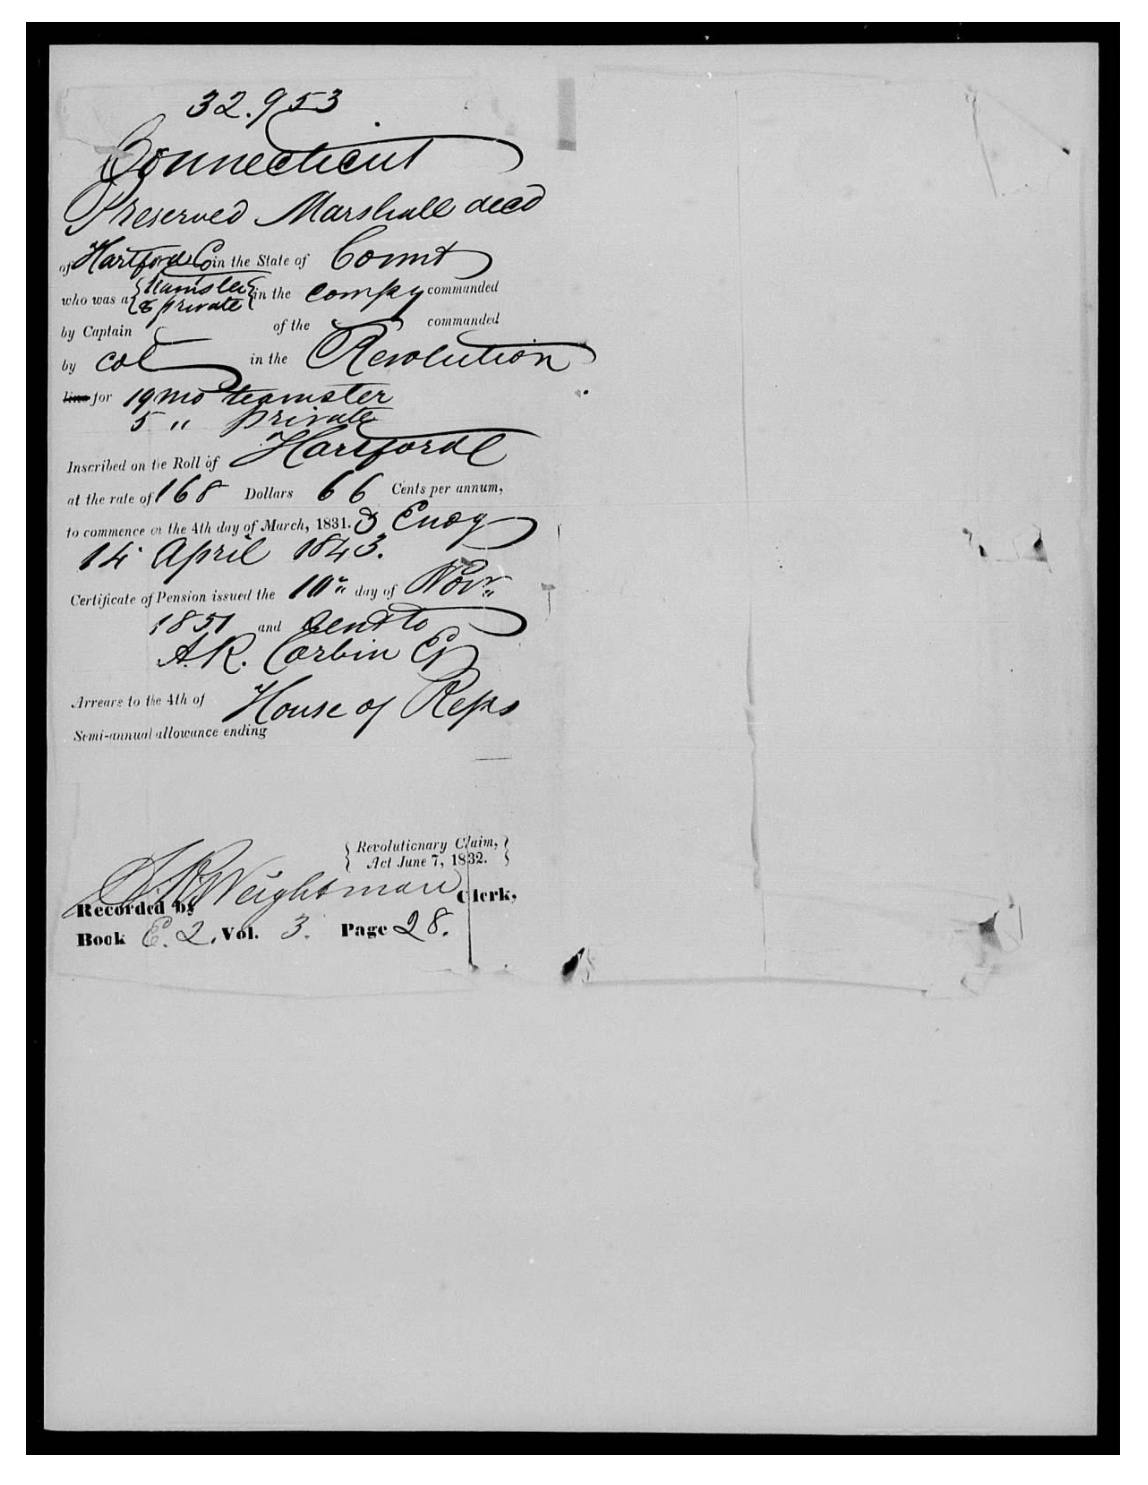 32.953
Connecticut
Preserved Marshall decd
of Hartford Co in the State of Connt
who was a teamster & private in the compy commanded
by Captain of the commanded
by col in the Revolution
line for 19 mo teamster
5 " private
Inscribed on the Roll of Hartford
at the rate of 168 Dollars 66 Cents per annum,
to commence on the 4th day of March, 1831. & Endg
14 April 1843.
Certificate of Pension issued the 10th day of Novr
1851 and sent to
A.R. Corbin Esq
Arrears to the 4th of House of Reps
Semi-annual allowance ending
Revolutionary Claim,
Act June 7, 1832.
Recorded by Weightman Clerk,
Book E. 2. Vol. 3. Page 28.